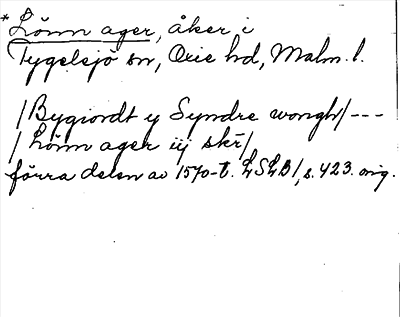 * Lönn ager, åker i
Tygelsjö sn, Oxie hd, Malm. l.
/Bygiordt y Syndre wongh/ ---
/Lönn ager iij skr/,
förra delen av 1570-t. LSLB 1, s. 423. orig.